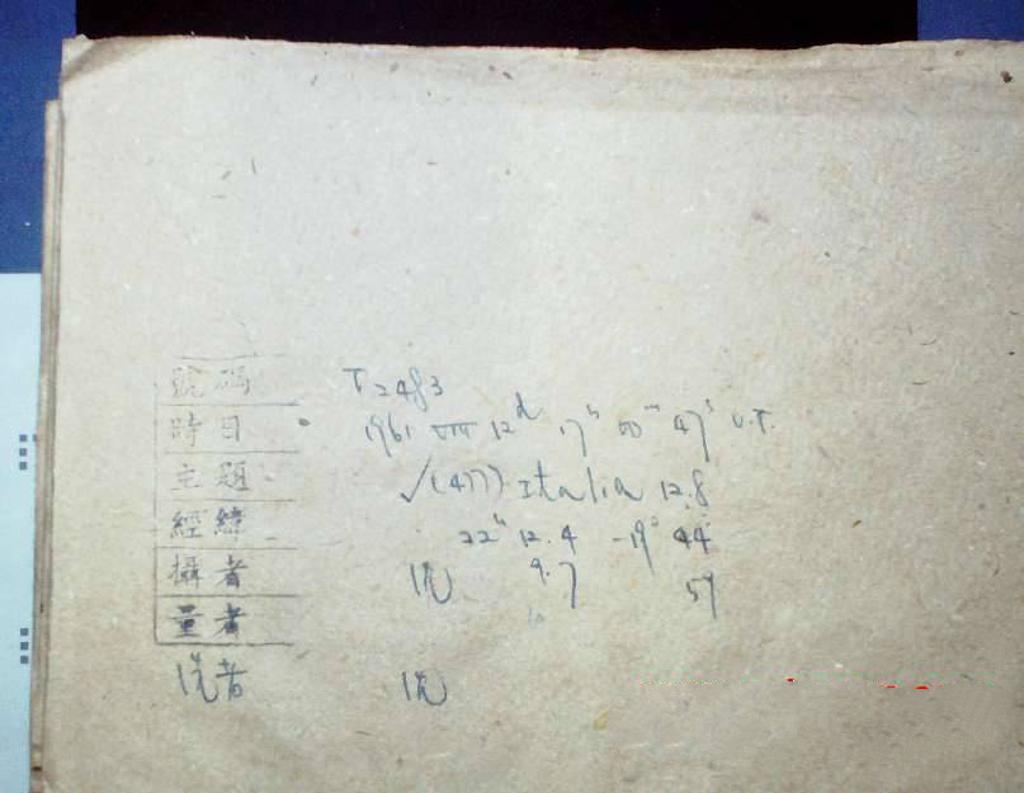 號碼 T2483
時日 1961 VIII 12d 17h 00m 47s U.T.
主題 ✓(477) Italia 12.8
經緯 22h 12.4 -19° 44'
攝者 9.7 57
量者
者